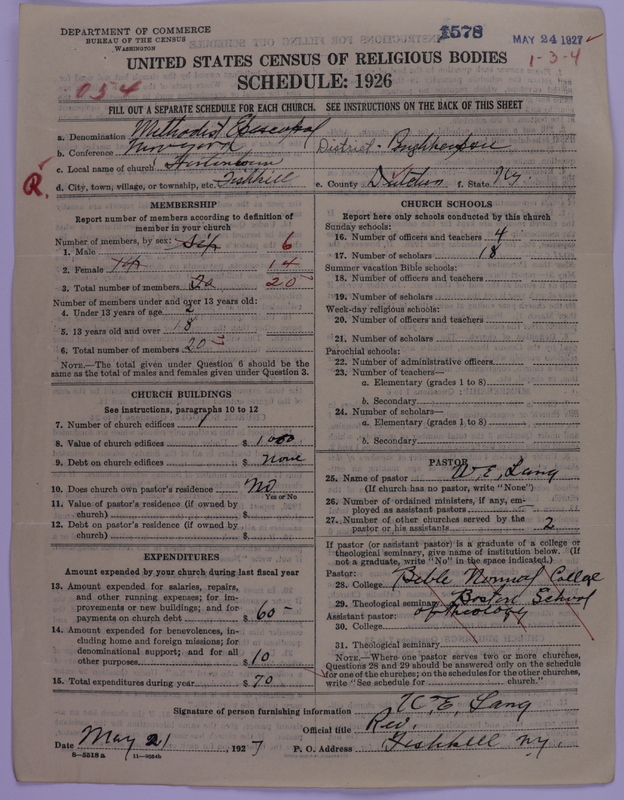 1578
MAY 24 1927
DEPARTMENT OF COMMERCE
BUREAU OF THE CENSUS
WASHINGTON
UNITED STATES CENSUS OF RELIGIOUS BODIES
1-3-4
SCHEDULE: 1926
054
FILL OUT A SEPARATE SCHEDULE FOR EACH CHURCH. SEE INSTRUCTIONS ON THE BACK OF THIS SHEET
a. Denomination Methodist Episcopal
b. Conference New York District - Poughkeepsie
c. Local name of church
R. d. City, town, village, or township, etc. Fishkill e. County Dutchess f. State N.Y.
MEMBERSHIP
Report number of members according to definition of
member in your church
Number of members, by sex:
1. Male Six 6
2. Female 14 14
3. Total number of members 20
Number of members under and over 13 years old:
4. Under 13 years of age 2
5. 13 years old and over 18
6. Total number of members 20
NOTE.—The total given under Question 6 should be
same as the total of males and females given under Question 3.
CHURCH BUILDINGS
See instructions, paragraphs 10 to 12
7. Number of church edifices 1
8. Value of church edifices $ 1000
9. Debt on church edifices $ None
10. Does church own pastor's residence No
Yes or No
11. Value of pastor's residence (if owned by
church) $
12. Debt on pastor's residence (if owned by
church) $
EXPENDITURES
Amount expended by your church during last fiscal year
13. Amount expended for salaries, repairs,
and other running expenses; for im-
provements or new buildings; and for
payments on church debt $ 60-
14. Amount expended for benevolences, in-
cluding home and foreign missions; for
denominational support; and for all
other purposes $ 10
15. Total expenditures during year $ 70
CHURCH SCHOOLS
Report here only schools conducted by this church
Sunday schools:
16. Number of officers and teachers 4
17. Number of scholars 18
Summer vacation Bible schools:
18. Number of officers and teachers
19. Number of scholars
Week-day religious schools:
20. Number of officers and teachers
21. Number of scholars
Parochial schools:
22. Number of administrative officers
23. Number of teachers—
a. Elementary (grades 1 to 8)
b. Secondary
24. Number of scholars—
a. Elementary (grades 1 to 8)
b. Secondary
PASTOR
25. Name of pastor W. E. Lang
(If church has no pastor, write "None")
26. Number of ordained ministers, if any, em-
ployed as assistant pastors
27. Number of other churches served by the
pastor or his assistants 2
If pastor (or assistant pastor) is a graduate of a college or
theological seminary, give name of institution below. (If
not a graduate, write "No" in the space indicated.)
Pastor:
28. College Bible Normal College
29. Theological seminary Boston School
of Theology
Assistant pastor:
30. College
31. Theological seminary
NOTE.—Where one pastor serves two or more churches,
Questions 28 and 29 should be answered only on the schedule
for one of the churches; on the schedules for the other churches,
write "See schedule for church."
Signature of person furnishing information W. E. Lang
Official title Rev.
Date May 21, 1927 P. O. Address Fishkill N.Y.
8—5518 a 11—9064b